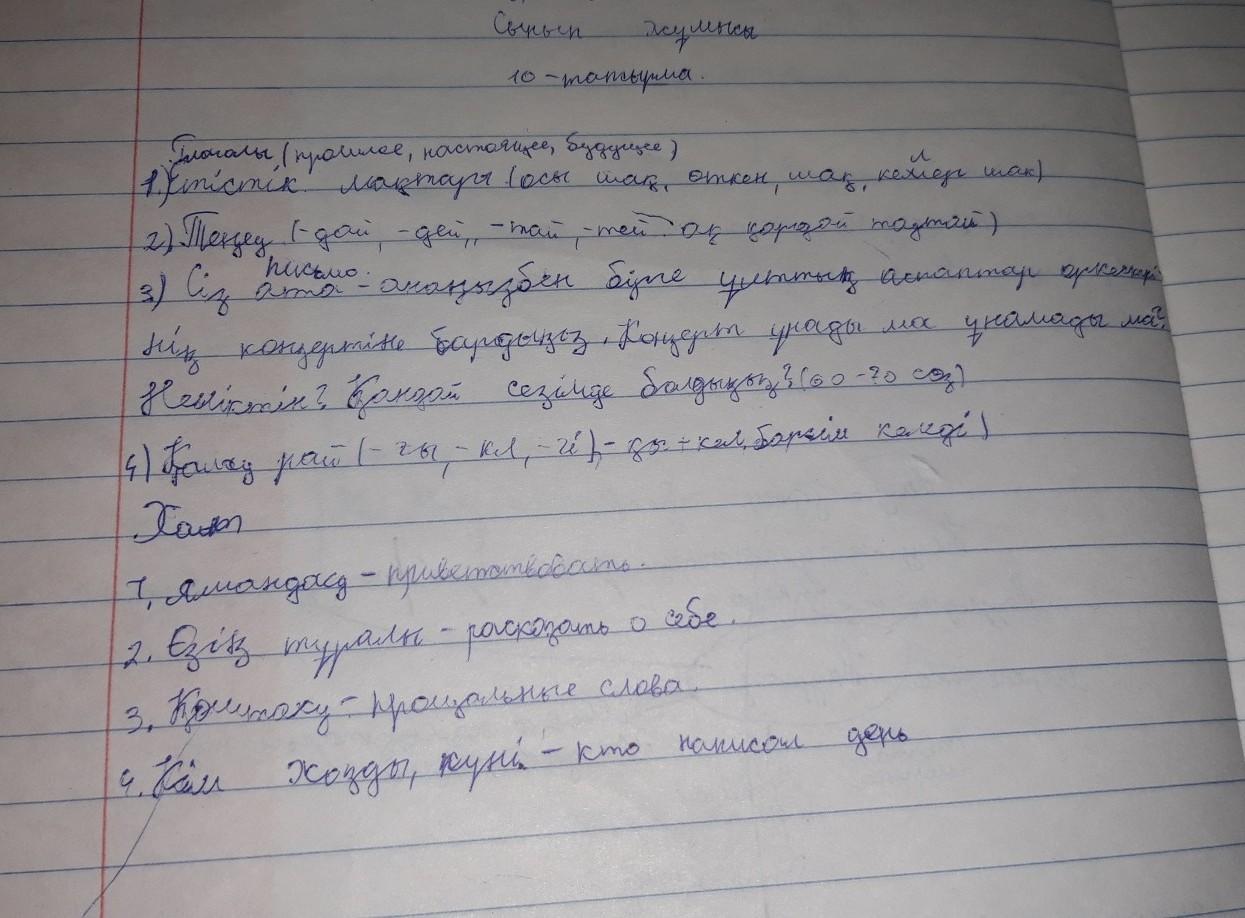 Сынып жұмысы
10-тапсырма.
Глаголы (прошлое, настоящее, будущее)
1.) Етістік шақтары (осы шақ, өткен, шақ, келер шақ)
2) Теңеу (-дай, -дей, -тай, -тей ақ қардай таудай)
письмо.
3) Сіз ата-анаңызбен бірге ұлттық аспаптар оркестрі
нің концертіне бардыңыз. Концерт ұнады ма ұнамады ма?
Неліктін? Қандай сезімде болдыңыз? (60-70 сөз)
4) Қалау рай (-ғы, -кі, -гі), -қы + кел, барғым келді)
Хат
1. Амандасу - приветствовать.
2. Өзің туралы - расказать о себе.
3. Қоштасу - прощальные слова.
4. Кім жазды, күні - кто написал день